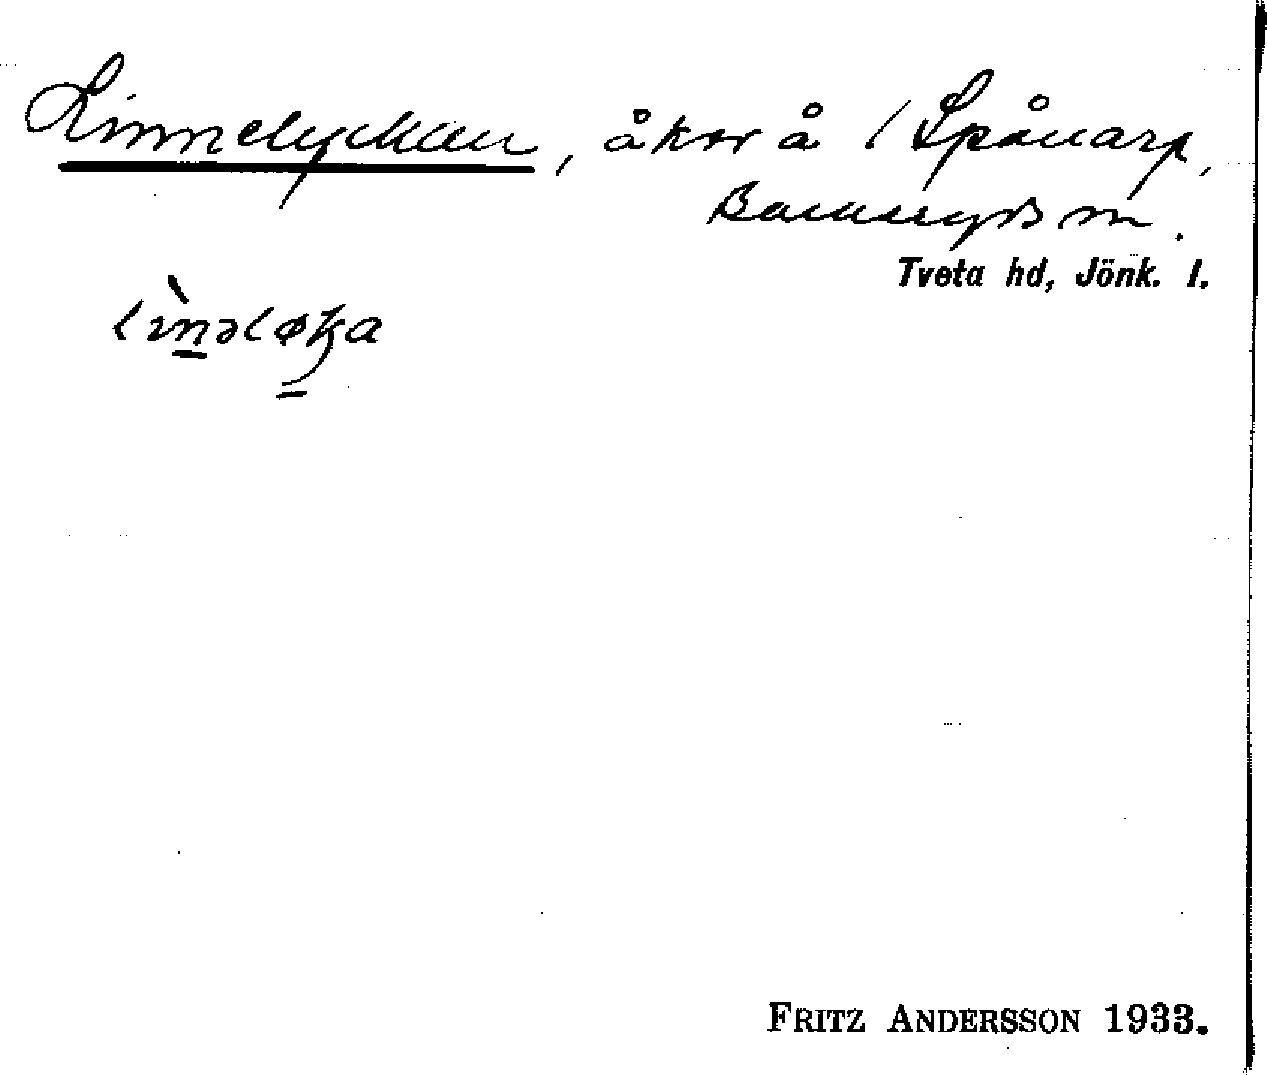 Linnelyckan, åker å / Spånarp,
Barnarps sn.
Tveta hd, Jönk. l.
lìnəløka
FRITZ ANDERSSON 1933.